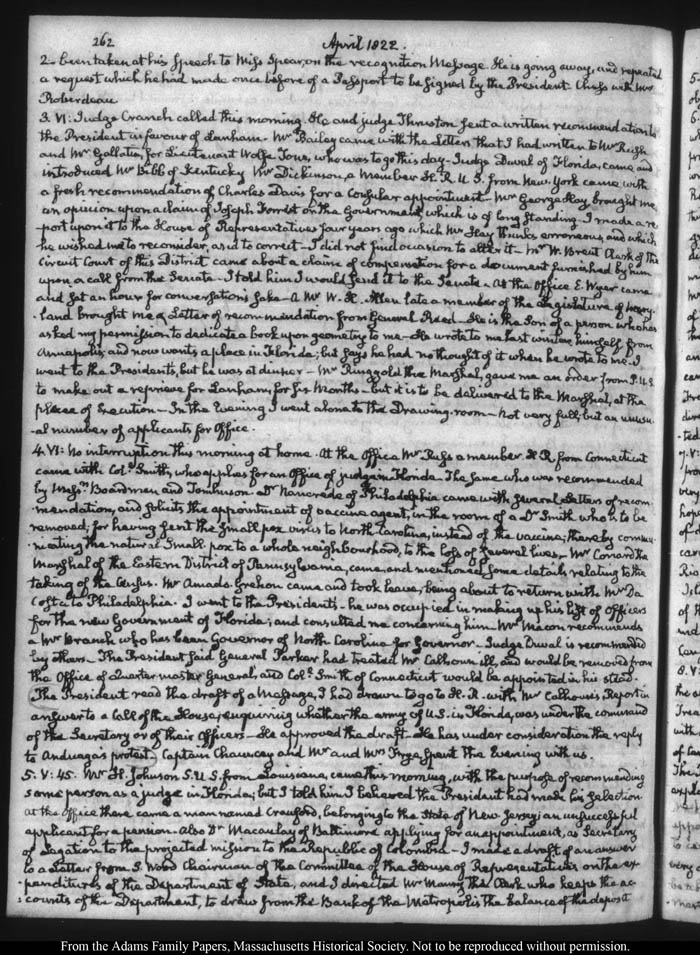 262
April 1822.
2. been taken at his Speech to Miss Spear, on the recognition Message. He is going away, and repeated
a request which he had made once before of a Passport to be signed by the President. Chess with Mr
Roberdeau
3. VI. Judge Cranch called this morning. He and judge Thruston sent a written recommendation to
the President in favour of Lanham. Mr Bailey came with the Letters that I had written to Mr Rush
and Mr Gallatin, for Lieutenant Wolfe Tone, who was to go this day. Judge Duval of Florida, came and
introduced Mr Bibb of Kentucky Mr Dickinson, a Member H. R. U.S. from New-York came with
a fresh recommendation of Charles Davis for a Consular appointment. Mr George Hay brought me
an opinion upon a claim of Joseph Forrest on the Government, which is of long standing. I made a re-
port upon it to the House of Representatives four years ago which Mr Hay thinks erroneous, and which
he wished me to reconsider, as it to correct. I did not find occasion to alter it. Mr W. Brent Clerk of the
Circuit Court of this District came about a claim of compensation for a document furnished by him
upon a call from the Senate. I told him I would send it to the Senate. At the Office E. Wyer came
and sat an hour for conversation's sake. A Mr W. H. Allen late a member of the Legislature of Mary-
land brought me a Letter of recommendation from General Reed. He is the Son of a person who has
asked my permission to dedicate a book upon geometry to me. He wrote to me last winter himself from
Annapolis, and now wants a place in Florida; but says he had no thought of it when he wrote to me. I
went to the Presidents, but he was at dinner. Mr Ringgold the Marshal, gave me an order from P. U.S.
to make out a reprieve for Lanham, for six Months. but it is to be delivered to the Marshal, at the
place of execution. In the Evening I went alone to the Drawing-room. Not very full; but an unusu-
-al number of applicants for Office.
4. VI: No interruption this morning at home. At the Office Mr Russ a member H. R. from Connecticut
came with Coll. Smith, who applies for an Office of judge in Florida. The same who was recommended
by Messrs Boardman and Tomlinson. Dr Nancrede of Philadelphia came with several Letters of recom-
mendation, and solicits the appointment of vaccine agent, in the room of a Dr Smith who is to be
removed, for having sent the Small pox virus to North Carolina, instead of the vaccine; thereby commu-
nicating the natural Small pox to a whole neighbourhood, to the loss of several lives. Mr Conard the
Marshal of the Eastern District of Pennsylvania, came, and mentioned some details relating to the
taking of the Census. Mr Amado Grehon came and took leave, being about to return with Mr Da
Costa to Philadelphia. I went to the Presidents. he was occupied in making up his list of Officers
for the new Government of Florida; and consulted me concerning him. Mr Macon recommends
a Mr Branch who has been Governor of North Carolina for Governor. Judge Duval is recommended
by others. The President said General Parker had treated Mr Calhoun ill, and would be removed from
the Office of Quarter master General, and Coll. Smith of Connecticut would be appointed in his stead.
The President read the draft of a Message, I had drawn to go to H. R. with Mr Calhoun's Report in
answer to a Call of the House, enquiring whether the army of U.S. in Florida, was under the command
of the Secretary or of their Officers. He approved the draft. He has under consideration the reply
to Anduaga's protest. Captain Chauncey and Mr and Mrs Frye spent the Evening with us.
5. V: 45. Mr H. Johnson S. U.S. from Louisiana, came this morning, with the purpose of recommending
some person as a judge in Florida; but I told him I believed the President had made his selection
at the Office there came a man named Crawford, belonging to the State of New Jersey; an unsuccessful
applicant for a pension. Also Dr Macaulay of Baltimore applying for an appointment, as Secretary
of Legation to the projected mission to the Republic of Colombia. I made a draft of an answer
to a Letter from S. Wood Chairman of the Committee of the House of Representatives, on the ex-
penditures of the Department of State, and I directed Mr Maury the Clerk who keeps the ac-
counts of the Department, to draw from the Bank of the Metropolis the balance of the deposit
From the Adams Family Papers, Massachusetts Historical Society. Not to be reproduced without permission.